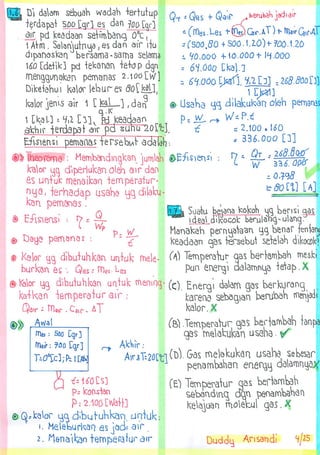 Di dalam sebuah wadah tertutup
terdapat 500 [gr] es dan 700 [gr]
air pd keadaan setimbang 0°C,
1 Atm. Selanjutnya, es dan air itu
dipanaskan bersama-sama selama
160 [detik] pd tekanan tetap dgn
menggunakan pemanas 2.100 [W]
Diketahui kalor lebur es 80 [kal/g],
kalor jenis air 1 [kal/g.K], dan
1 [kal] = 4,2 [J]. Pd keadaan
akhir terdapat air pd suhu 20[°C].
Efisiensi pemanas tersebut adalah:
Theorema: Membandingkan jumlah
kalor yg diperlukan oleh air dan
es untuk menaikan temperatur-
nya, terhadap usaha yg dilaku-
kan pemanas.
Efisiensi : η = Q/W
Daya pemanas : P = W/t
Kalor yg dibutuhkan untuk mele-
burkan es : Qes = Mes . Les
Kalor yg dibutuhkan untuk mening-
katkan temperatur air :
Qair = Mair . Cair . ΔT
Awal
mes : 500 [gr]
mair : 700 [gr]
T : 0[°C]; P: 1 [Atm]
→ Akhir :
Air ΔT : 20[°C]
t = 160 [s]
P = konstan
P : 2.100 [Watt]
Q = kalor yg dibutuhkan untuk:
1. Meleburkan es jadi air
2. Menaikan temperatur air
QT = Qes + Qair → berubah jadi air
= (mes . Les + mes . Cair . ΔT) + mair . Cair . ΔT
= (500.80 + 500.1.20) + 700.1.20
= 40.000 + 10.000 + 14.000
= 64.000 [kal]
= 64.000 [kal] . 4,2 [J] / 1 [kal] = 268.800 [J]
Usaha yg dilakukan oleh pemanas
P = W/t → W = P.t
= 2.100 . 160
= 336.000 [J]
Efisiensi : η = QT/W = 268.800/336.000
= 0,798
≈ 80 [%] [A]
Suatu bejana kokoh yg berisi gas
ideal dikocok berulang-ulang.
Manakah pernyataan yg benar tentang
keadaan gas tersebut setelah dikocok
(A) Temperatur gas bertambah meski
pun energi dalamnya tetap. X
(C). Energi dalam gas berkurang
karena sebagian berubah menjadi
kalor. X
(B). Temperatur gas bertambah tanpa
gas melakukan usaha. ✓
(D). Gas melakukan usaha sebesar
penambahan energy dalamnya X
(E) Temperatur gas bertambah
sebanding dgn penambahan
kelajuan molekul gas. X
Duddy Arisandi 4/25